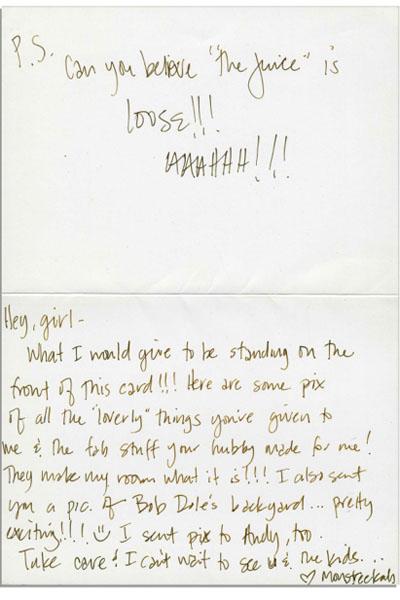 P.S. Can you believe "the Juice" is
loose!!!
AAAHHH!!!
Hey, girl-
What I would give to be standing on the
front of this card!!! Here are some pix
of all the "loverly" things you've given to
me & the fab stuff your hubby made for me!
They make my room what it is!!! I also sent
you a pic. of Bob Dole's backyard... pretty
exciting!!!! I sent pix to Andy, too.
Take care! I can't wait to see u & the kids...
♡